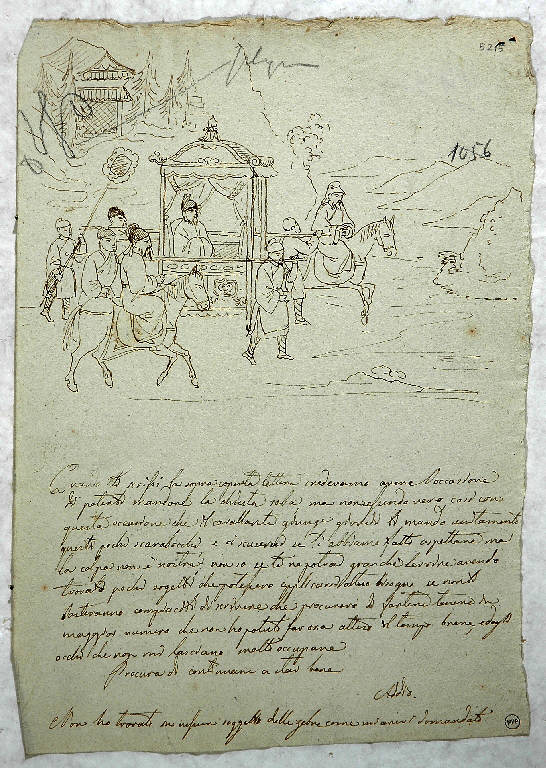 5215
1056
Quando ti scrissi la sopra coperta lettera credevamo avere l'occasione
di poterti mandare la chiesta roba ma non essendo vero così con
questa occasione che il cavallante giunge giovedì ti mando unitamente
questi pochi scarabocchi e ci scuserai se ti abbiamo fatto aspettare ma
la colpa non è nostra, non so se te ne potrai servire avendo
trovati pochi sogetti che potessero al bisogno, se non ti
basteranno compiacciti di scrivere che procurerò di fartene tenere in
maggior numero che non ho potuto far ora atteso il tempo breve, e gli
occhi che non mi lasciano molto occupare
Procura di continuare a star bene
Addio.
Non ho trovati in nessun soggetto delle zebre come mi avevi domandato